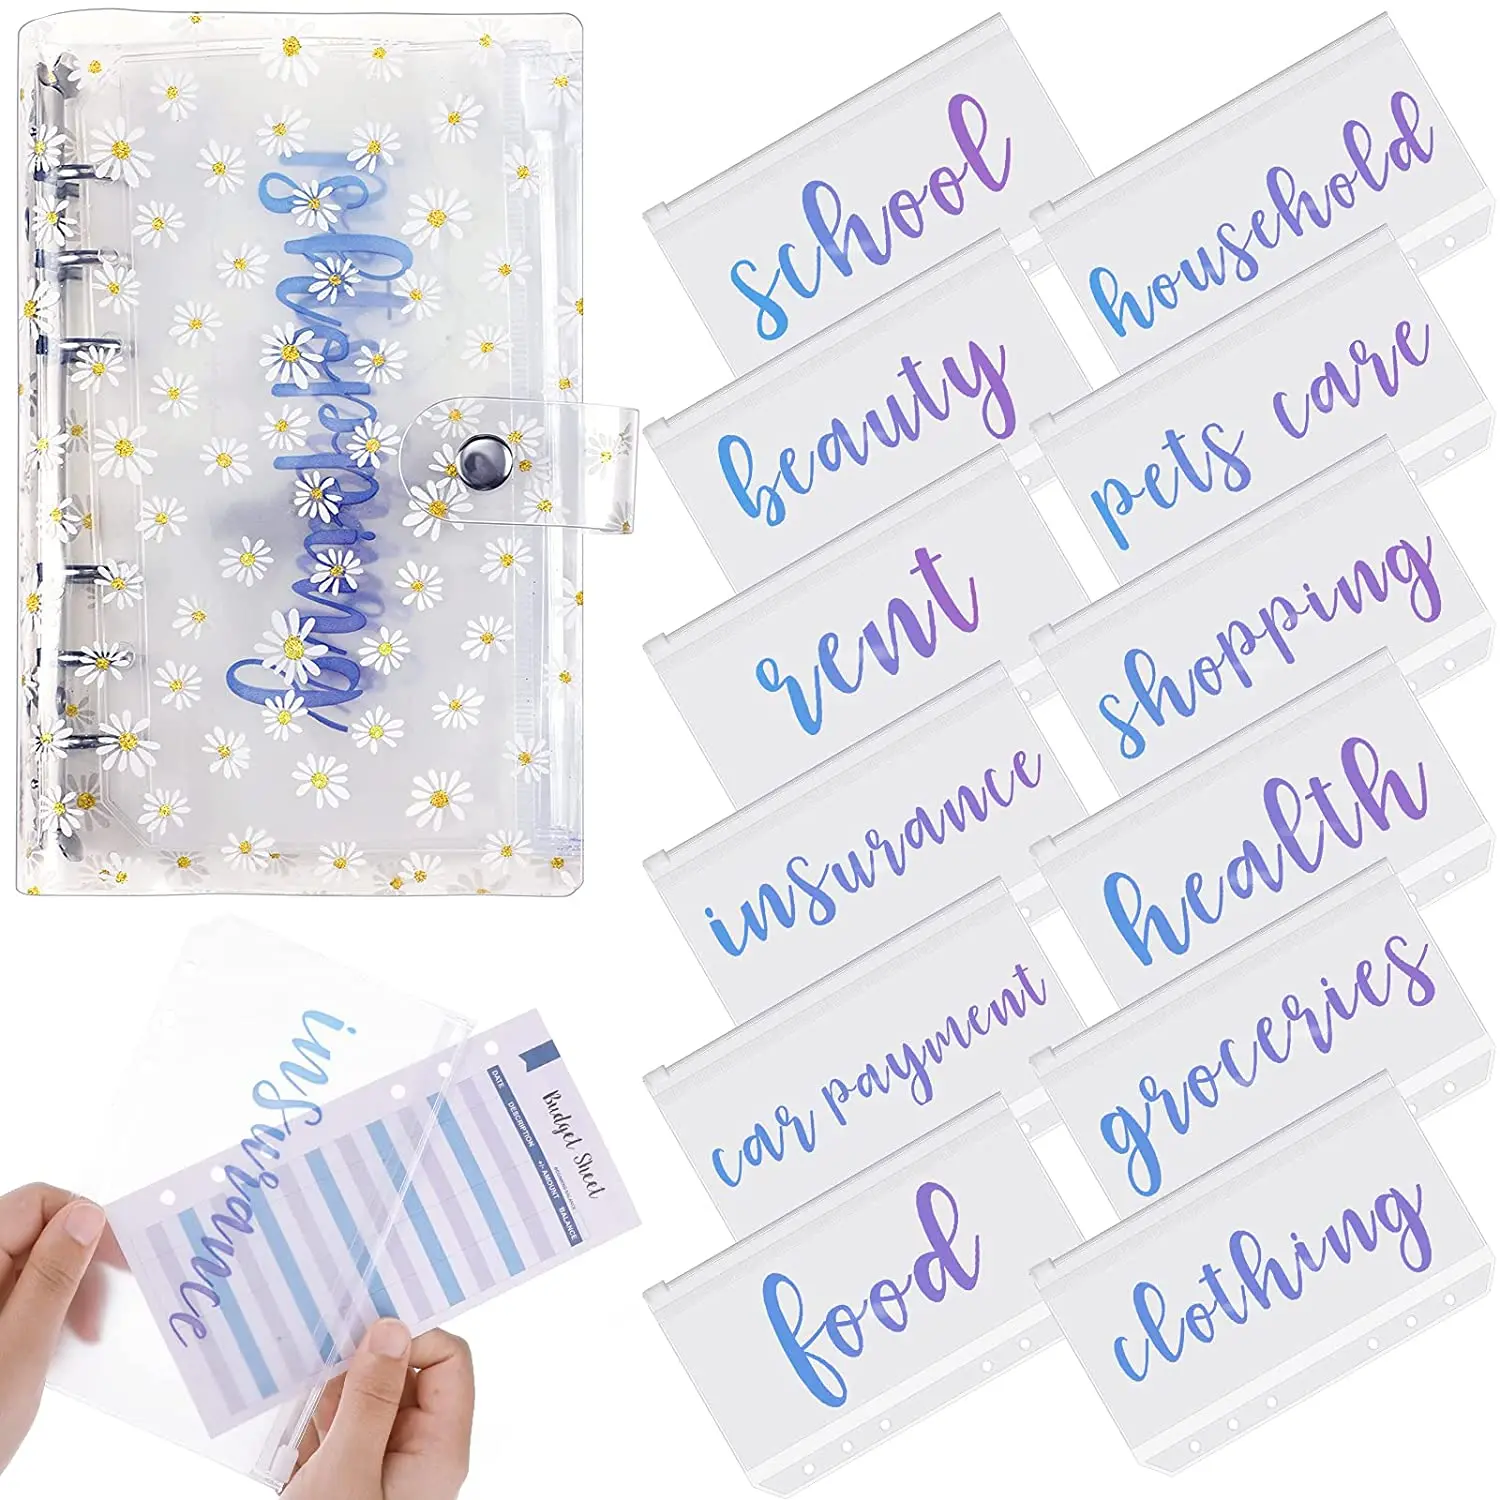 school
household
beauty
pets care
rent
shopping
insurance
health
car payment
groceries
food
clothing
insurance
Budget Sheet
BEGINNING BALANCE
DATE DESCRIPTION +/- AMOUNT BALANCE